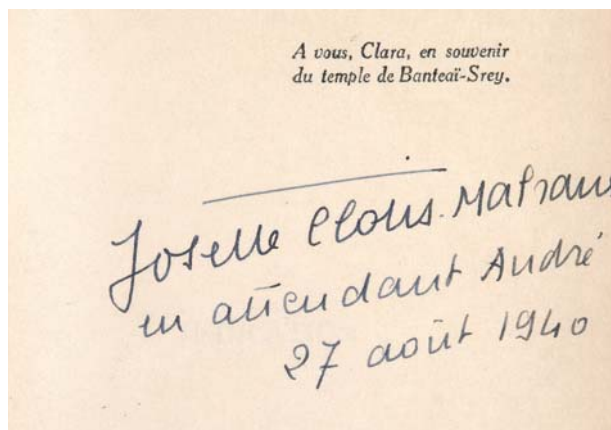 A vous, Clara, en souvenir
du temple de Banteaï-Srey.
Josette Clotis. Malraux
en attendant André
27 août 1940